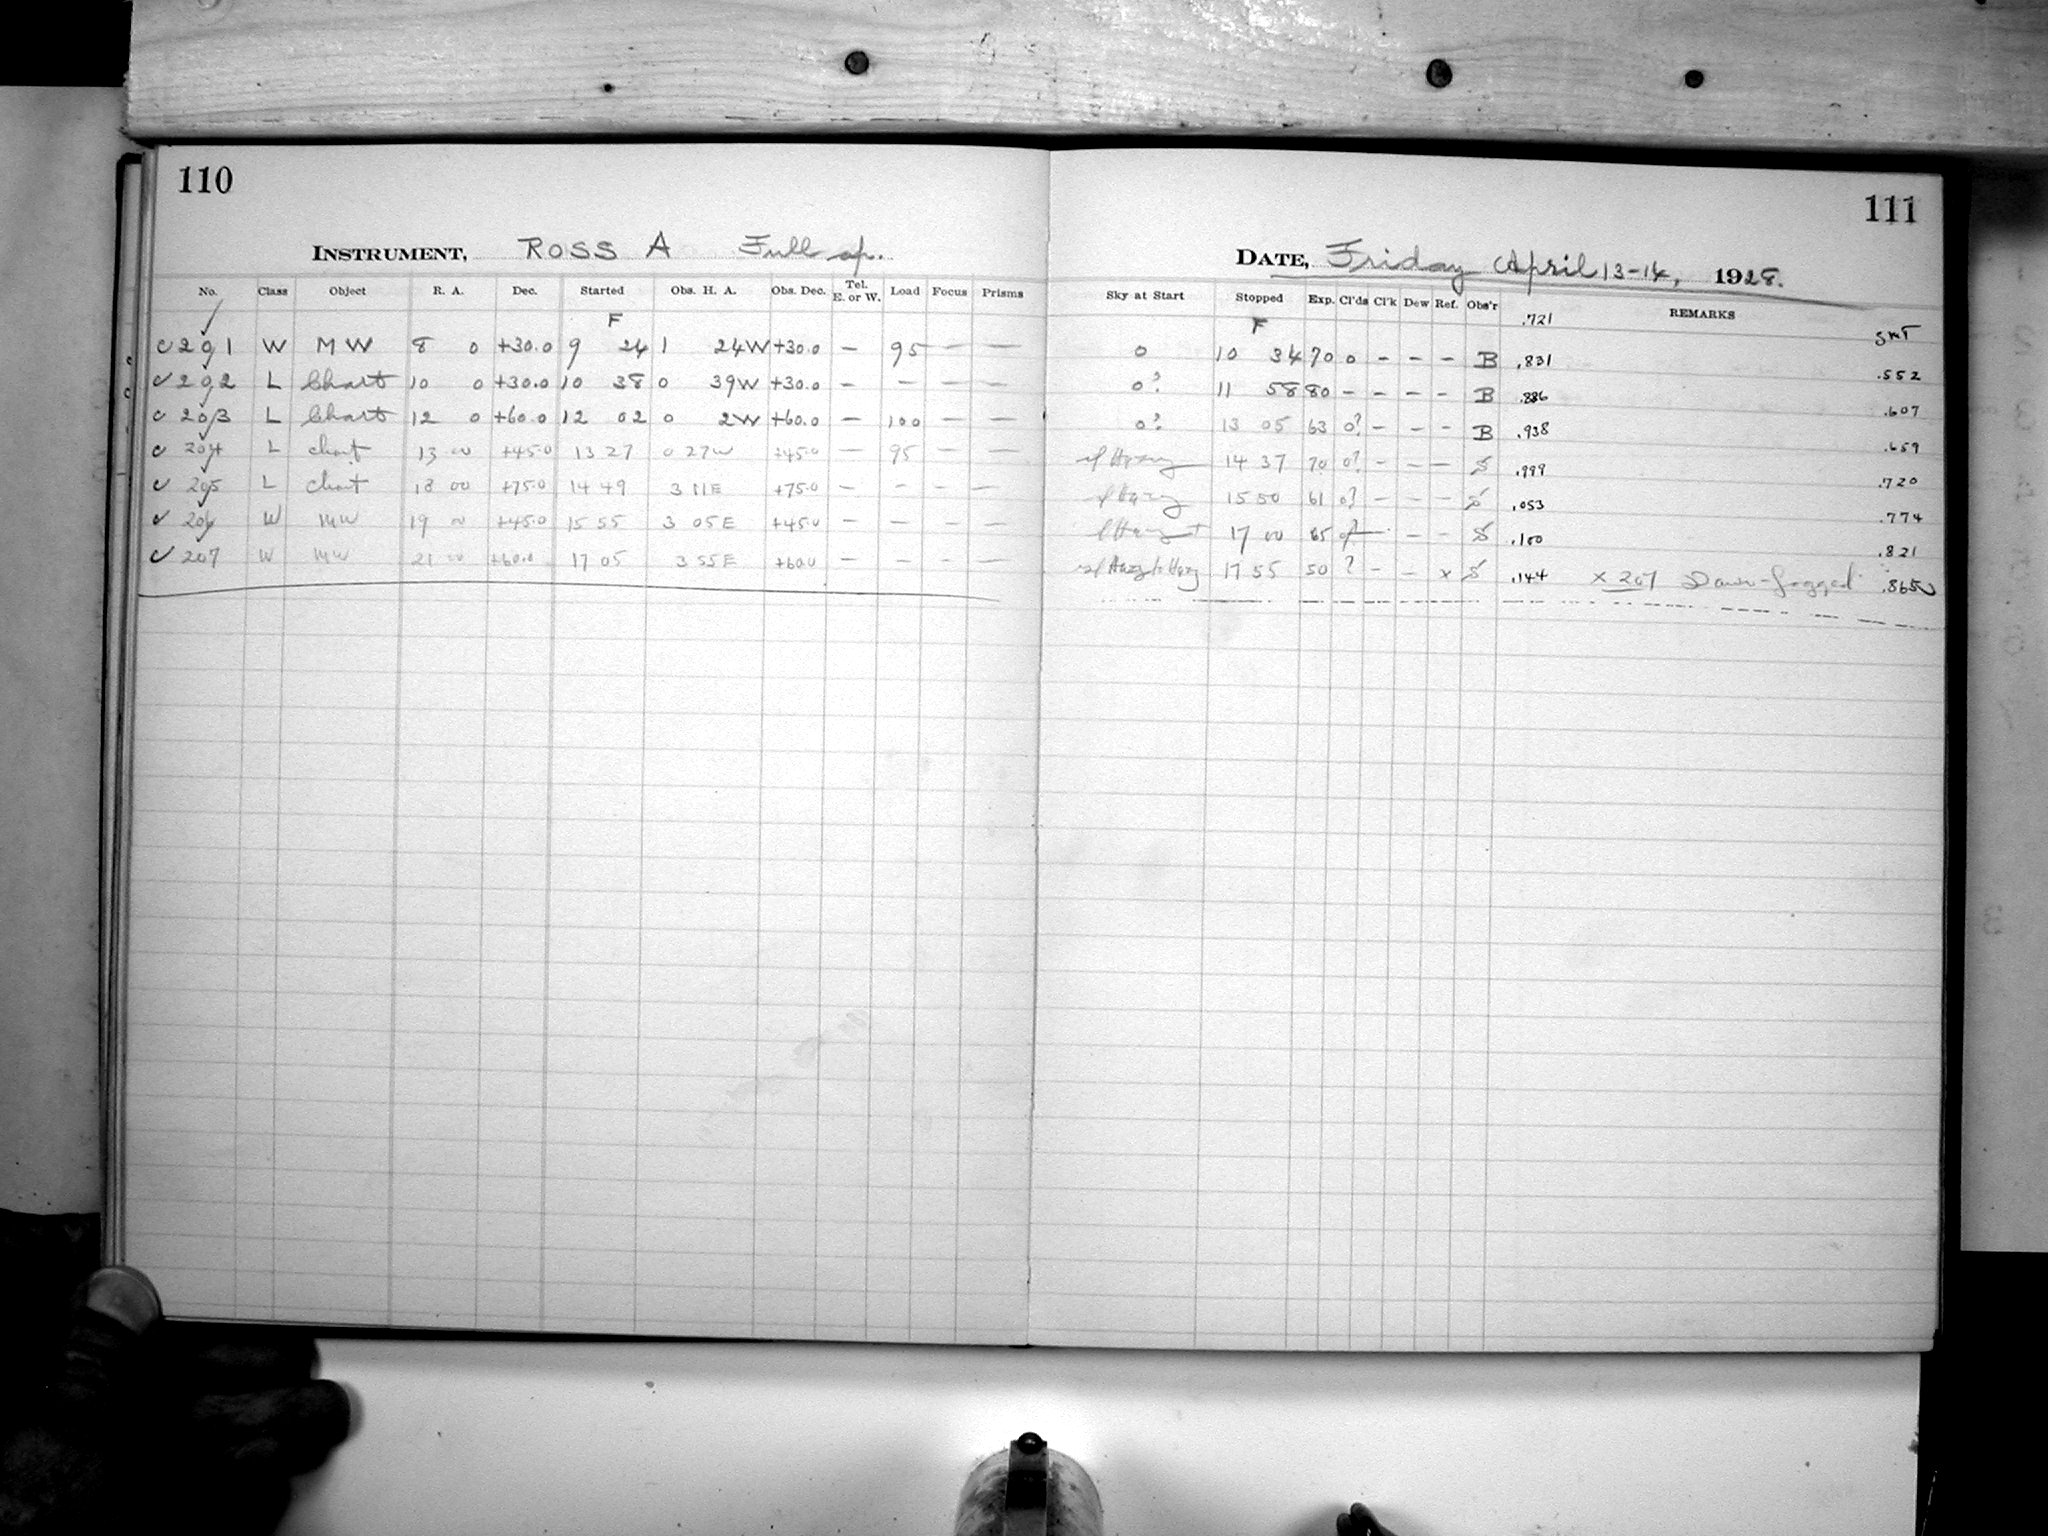 110
INSTRUMENT, ROSS A Full ap.
No. Class Object R. A. Dec. Started Obs. H. A. Obs. Dec. Tel. E. or W. Load Focus Prisms
F
201 W MW 8 0 +30.0 9 24 1 24W +30.0 — 95 — —
202 L Chart 10 0 +30.0 10 38 0 39W +30.0 — — — —
203 L Chart 12 0 +60.0 12 02 0 2W +60.0 — 100 — —
204 L chart 13 00 +45.0 13 27 0 27W +45.0 — 95 — —
205 L chart 18 00 +75.0 14 49 3 11E +75.0 — — — —
206 W MW 19 00 +45.0 15 55 3 05E +45.0 — — — —
207 W MW 21 00 +60.0 17 05 3 55E +60.0 — — — —
111
DATE, Friday April 13-14, 1928.
Sky at Start Stopped Exp. Cl'ds Cl'k Dew Ref. Obs'r REMARKS
F .721 GMT
0 10 34 70 0 - - - B .831 .552
0? 11 58 80 - - - - B .886 .607
0? 13 05 63 0? - - - B .938 .659
sl Hazy 14 37 70 0? - - - S .999 .720
sl Hazy 15 50 61 0? - - - S .053 .774
17 00 65 - - S .100 .821
17 55 50 ? - - x S .144 x 207 Dawn-fogged .865